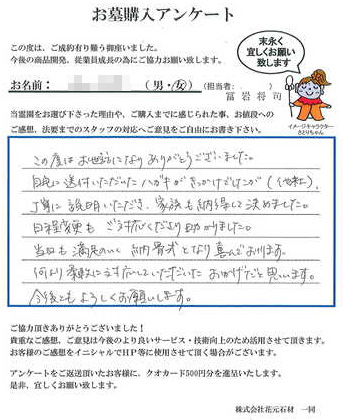 お墓購入アンケート
この度は、ご成約有り難う御座いました。
今後の商品開発、従業員成長の為にご協力お願い致します。
末永く
宜しくお願い
致します
お名前： （男・女）（担当者： ）
冨岩将司
当霊園をお選び下さった理由や、ご購入までに感じられた事、お値段への
ご感想、法要までのスタッフの対応へご意見をご自由にお書き下さい。
イメージキャラクター
さとりちゃん
この度はお世話になりありがとうございました。
自宅に送付いただいたハガキがきっかけでしたが(他社)、
丁寧に説明いただき、家族も納得して決めました。
日程変更もご対応くださり助かりました。
当日も満足のいく納骨式となり喜んでおります。
何より親切に対応していただいたおかげだと思います。
今後ともよろしくお願いします。
ご協力頂きありがとうございました！
貴重なご感想、ご意見は今後のより良いサービス・技術向上のため活用させて頂きます。
お客様のご感想をイニシャルでHP等に使用させて頂く場合がございます。
アンケートをご返送頂いたお客様に、クオカード500円分を進呈いたします。
是非、宜しくお願い致します。
株式会社花元石材 一同